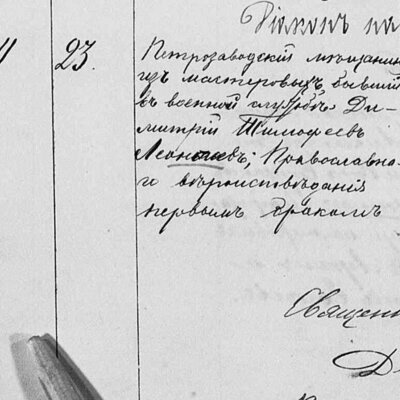 Діаконъ на
23.
Петрозаводскій мѣщанинъ
изъ мастеровыхъ, бывшій
въ военной службѣ Ди-
митрій Тимофеевъ
Леонтьевъ; Православна-
го вѣроисповѣданія
первымъ бракомъ
Священн
Ді